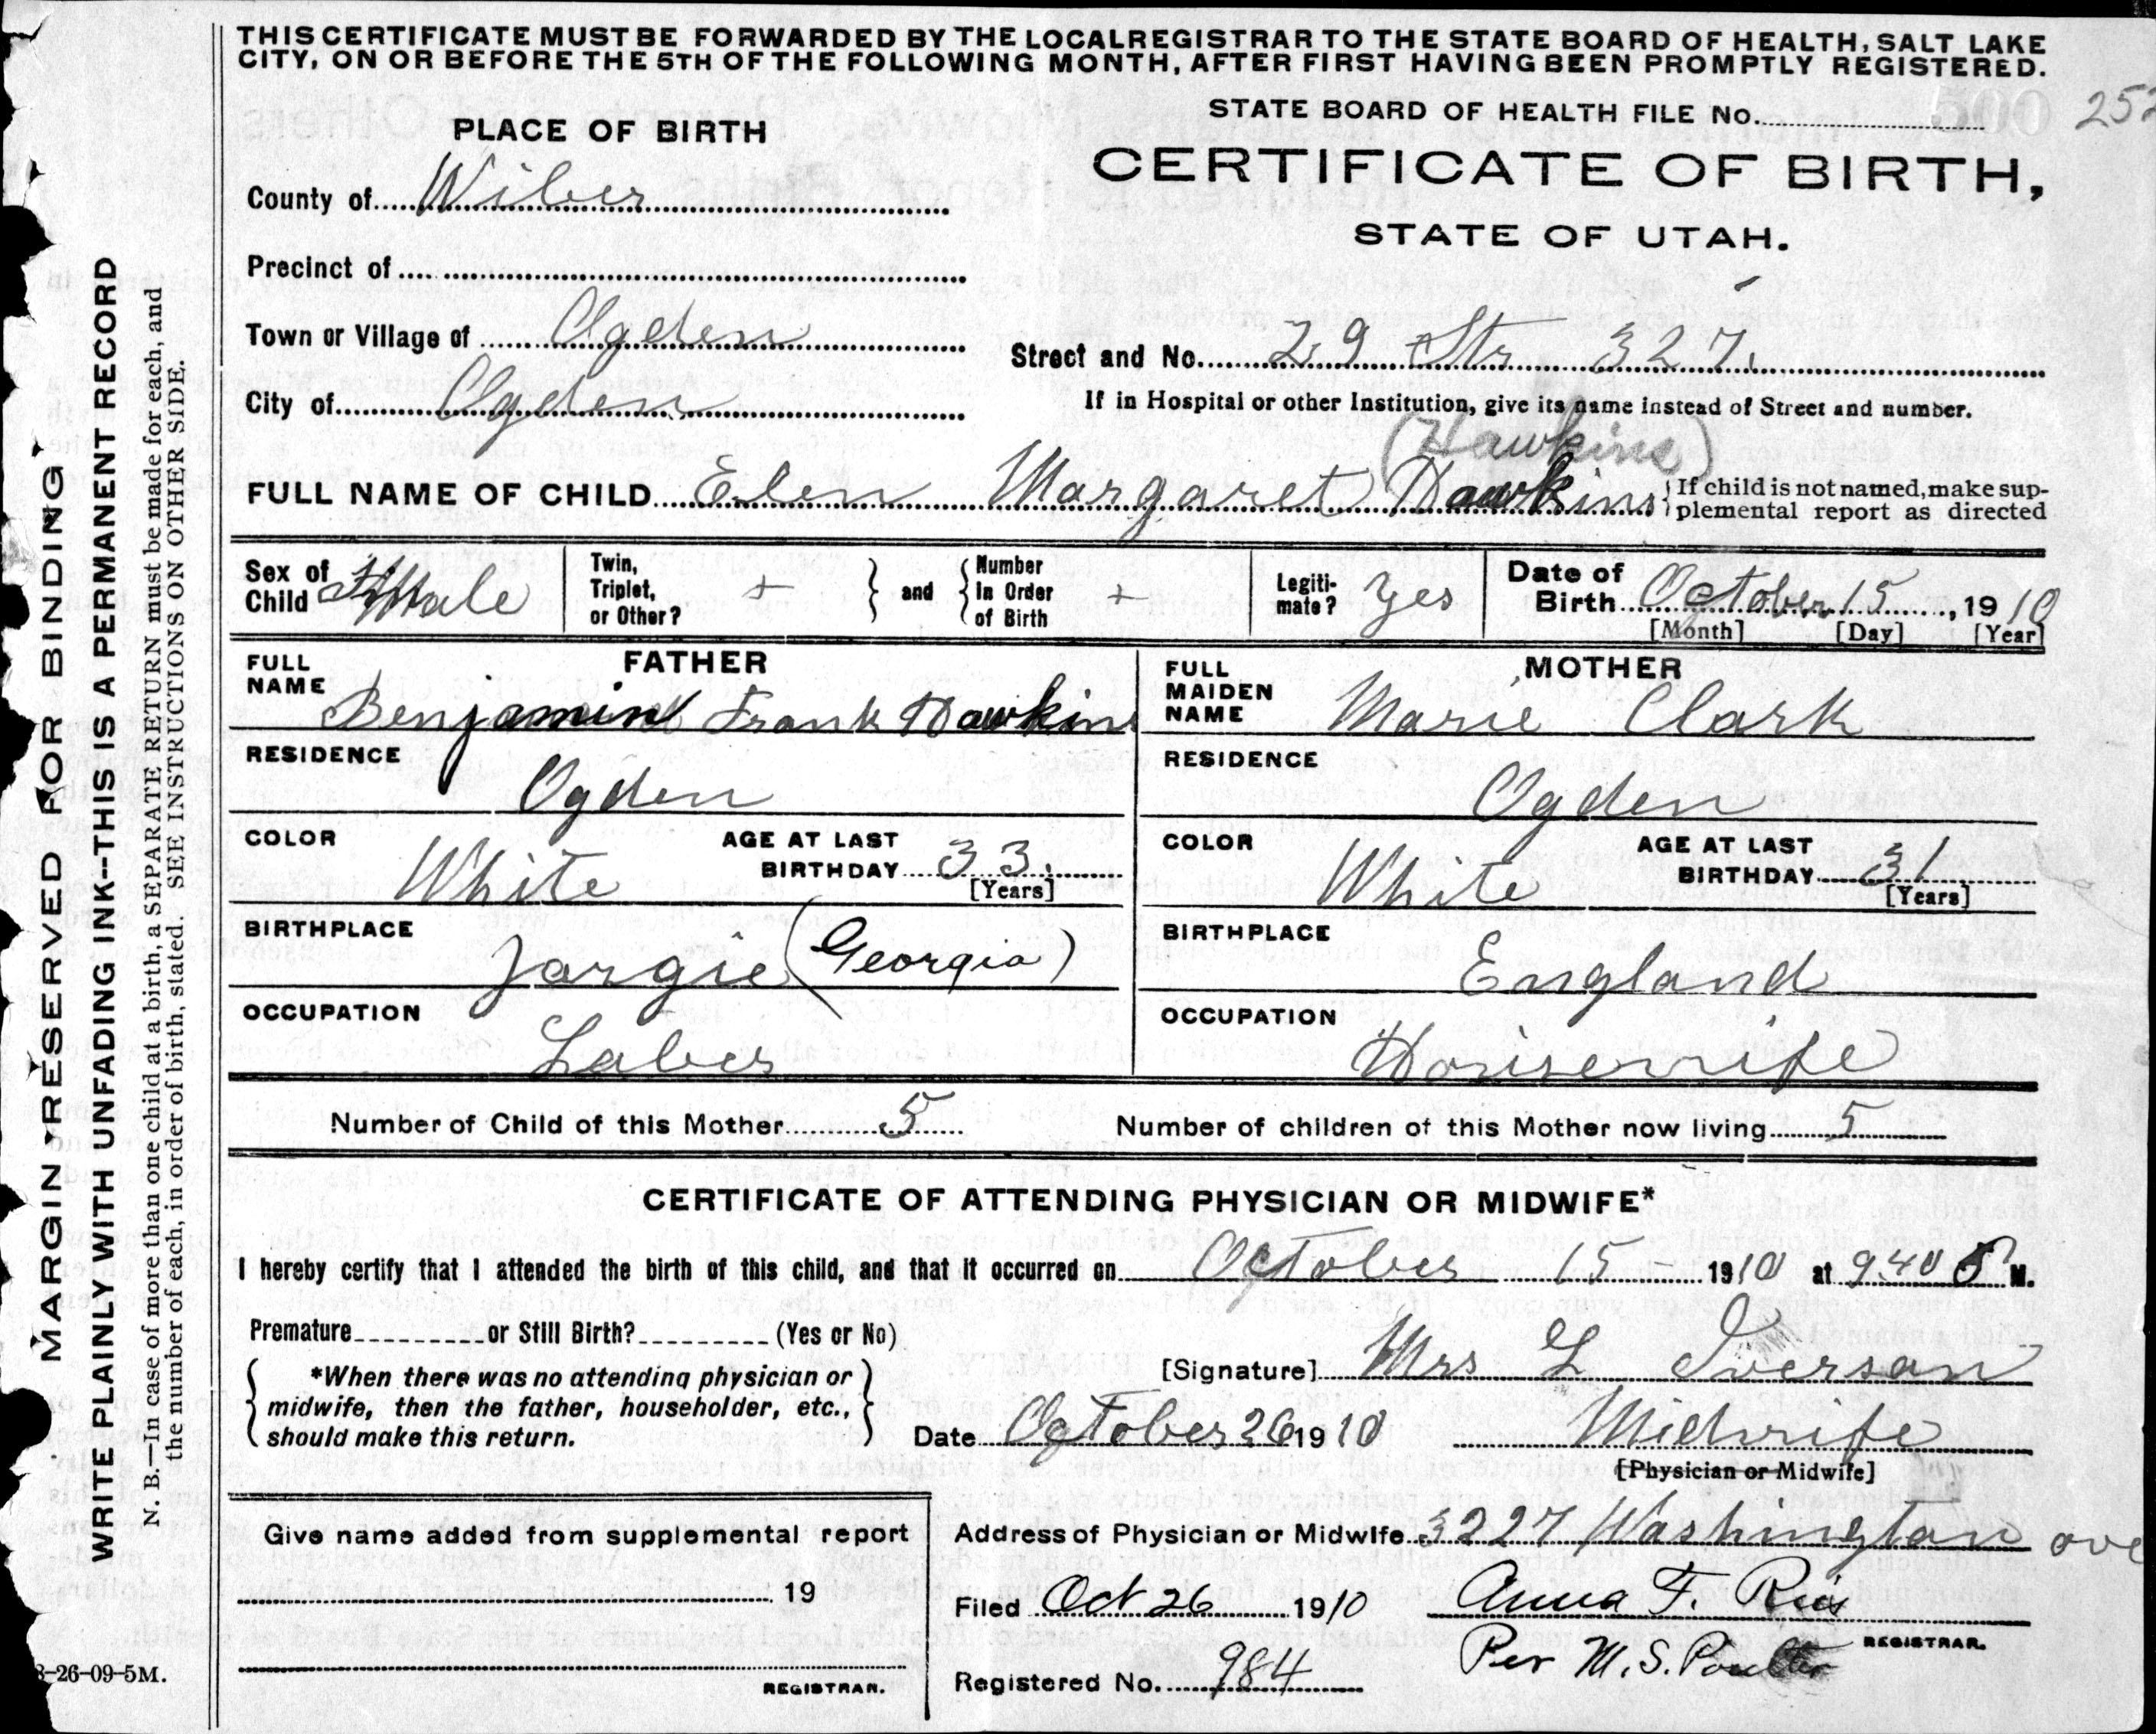 THIS CERTIFICATE MUST BE FORWARDED BY THE LOCAL REGISTRAR TO THE STATE BOARD OF HEALTH, SALT LAKE
CITY, ON OR BEFORE THE 5TH OF THE FOLLOWING MONTH, AFTER FIRST HAVING BEEN PROMPTLY REGISTERED.
STATE BOARD OF HEALTH FILE No. 500 252
PLACE OF BIRTH
CERTIFICATE OF BIRTH,
STATE OF UTAH.
County of Wiber
Precinct of
Town or Village of Ogden
Street and No. 29 Str 327.
City of Ogden
If in Hospital or other Institution, give its name instead of Street and number.
(Hawkins)
FULL NAME OF CHILD Elen Margaret Hawkins {If child is not named, make sup-
plemental report as directed
Sex of Child Male
Twin, Triplet, or Other? +
} and {
Number in Order of Birth +
Legiti-
mate? Yes
Date of Birth October 15, 1910
[Month] [Day] [Year]
FATHER
FULL NAME Benjamin Frank Hawkins
RESIDENCE
Ogden
COLOR White
AGE AT LAST BIRTHDAY 33.
[Years]
BIRTHPLACE
Jorgie (Georgia)
OCCUPATION
Laber
MOTHER
FULL MAIDEN NAME Marie Clark
RESIDENCE
Ogden
COLOR White
AGE AT LAST BIRTHDAY 31
[Years]
BIRTHPLACE
England
OCCUPATION
Housewife
Number of Child of this Mother 5
Number of children of this Mother now living 5
CERTIFICATE OF ATTENDING PHYSICIAN OR MIDWIFE*
I hereby certify that I attended the birth of this child, and that it occurred on October 15 1910 at 940 M.
Premature or Still Birth? (Yes or No)
*When there was no attending physician or
midwife, then the father, householder, etc.,
should make this return.
[Signature] Mrs L Iverson
Date October 26 1910
Midwife
[Physician or Midwife]
Give name added from supplemental report
19
REGISTRAR.
Address of Physician or Midwife 3227 Washington ave
Filed Oct 26 1910
Anna F.
REGISTRAR.
Per M. S. Poulter
Registered No. 984
MARGIN RESERVED FOR BINDING
WRITE PLAINLY WITH UNFADING INK--THIS IS A PERMANENT RECORD
N. B.—In case of more than one child at a birth, a SEPARATE RETURN must be made for each, and
the number of each, in order of birth, stated. SEE INSTRUCTIONS ON OTHER SIDE.
3-26-09-5M.